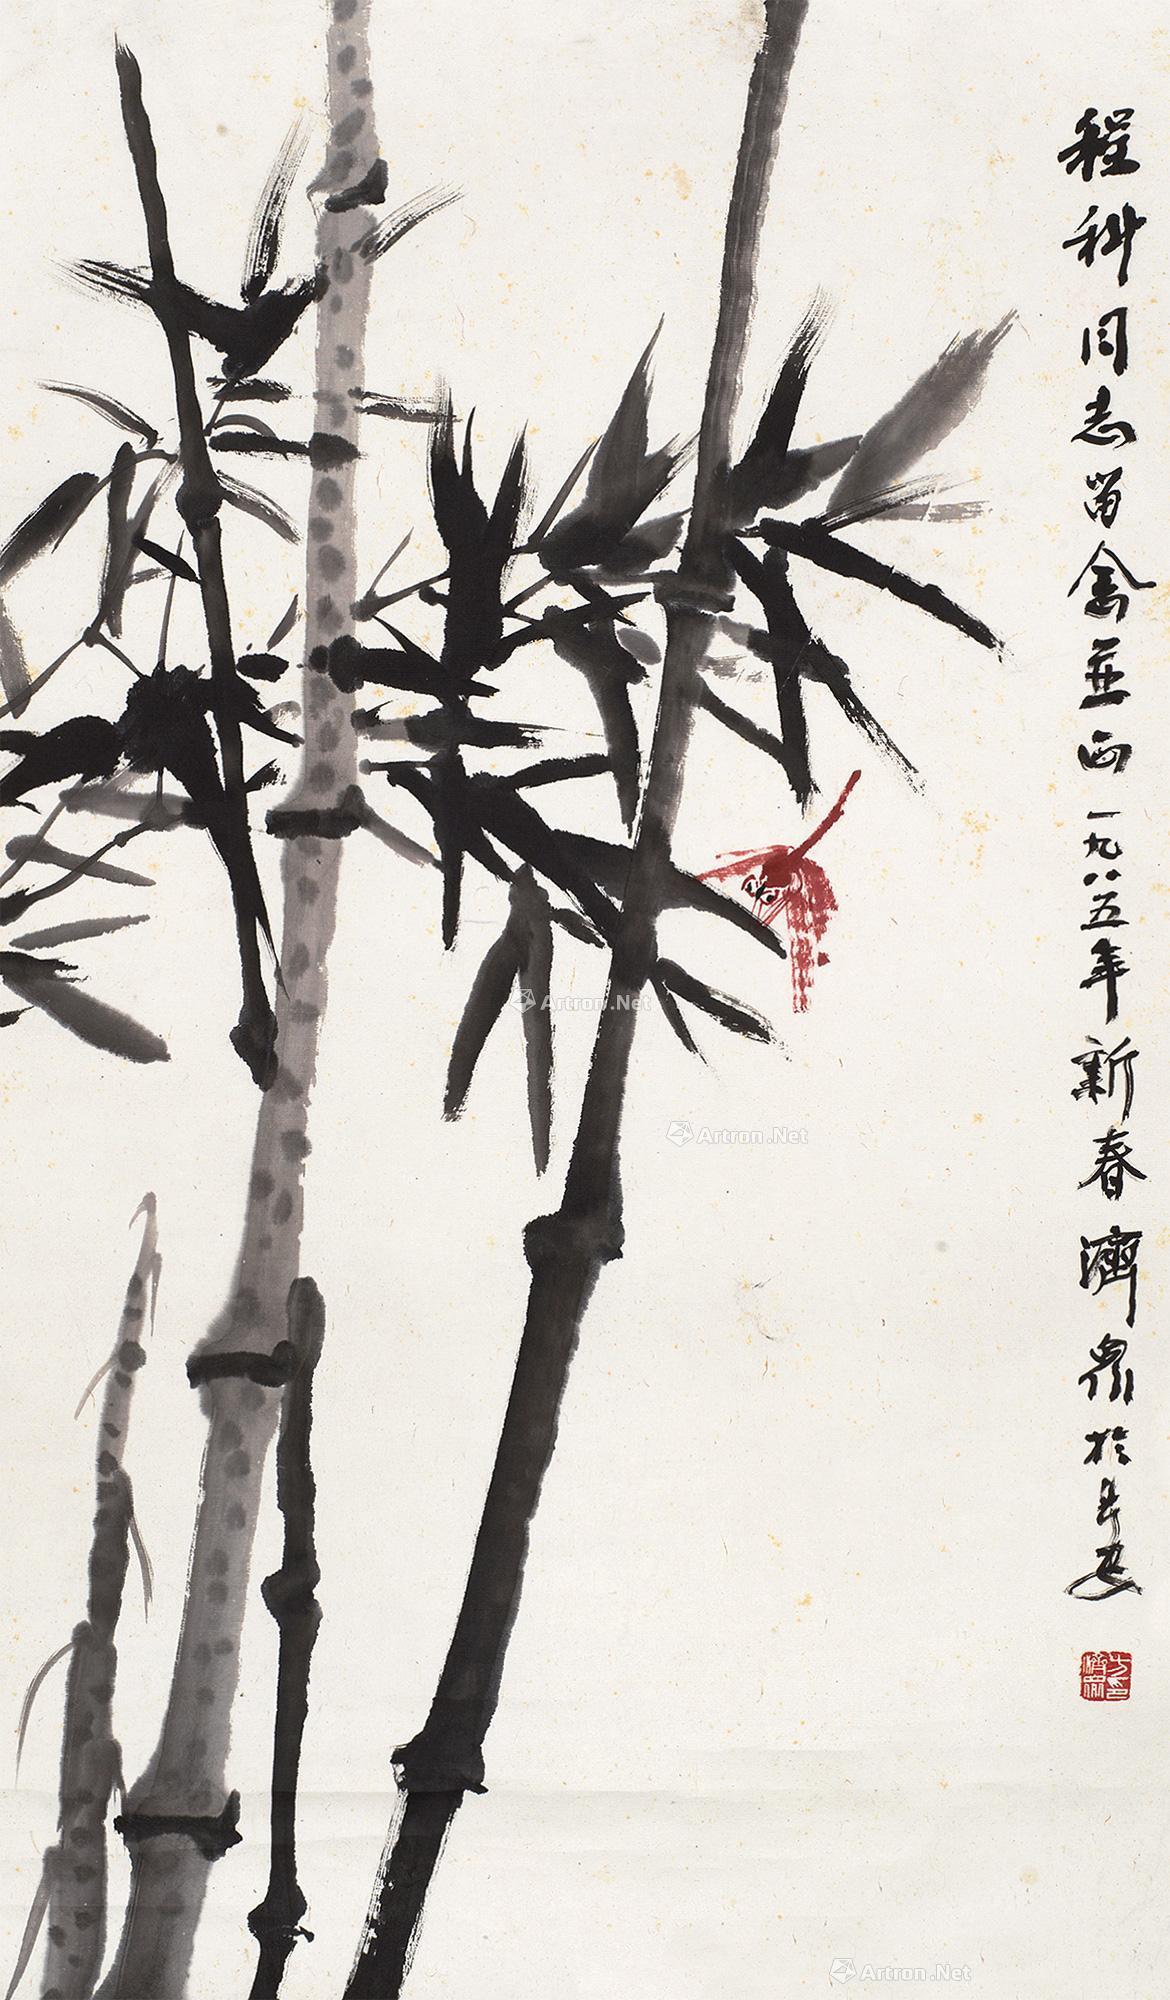 程科同志留念并画一九八五年新春济众於长安
方济众印
Artron.Net
Artron.Net
Artron.Net